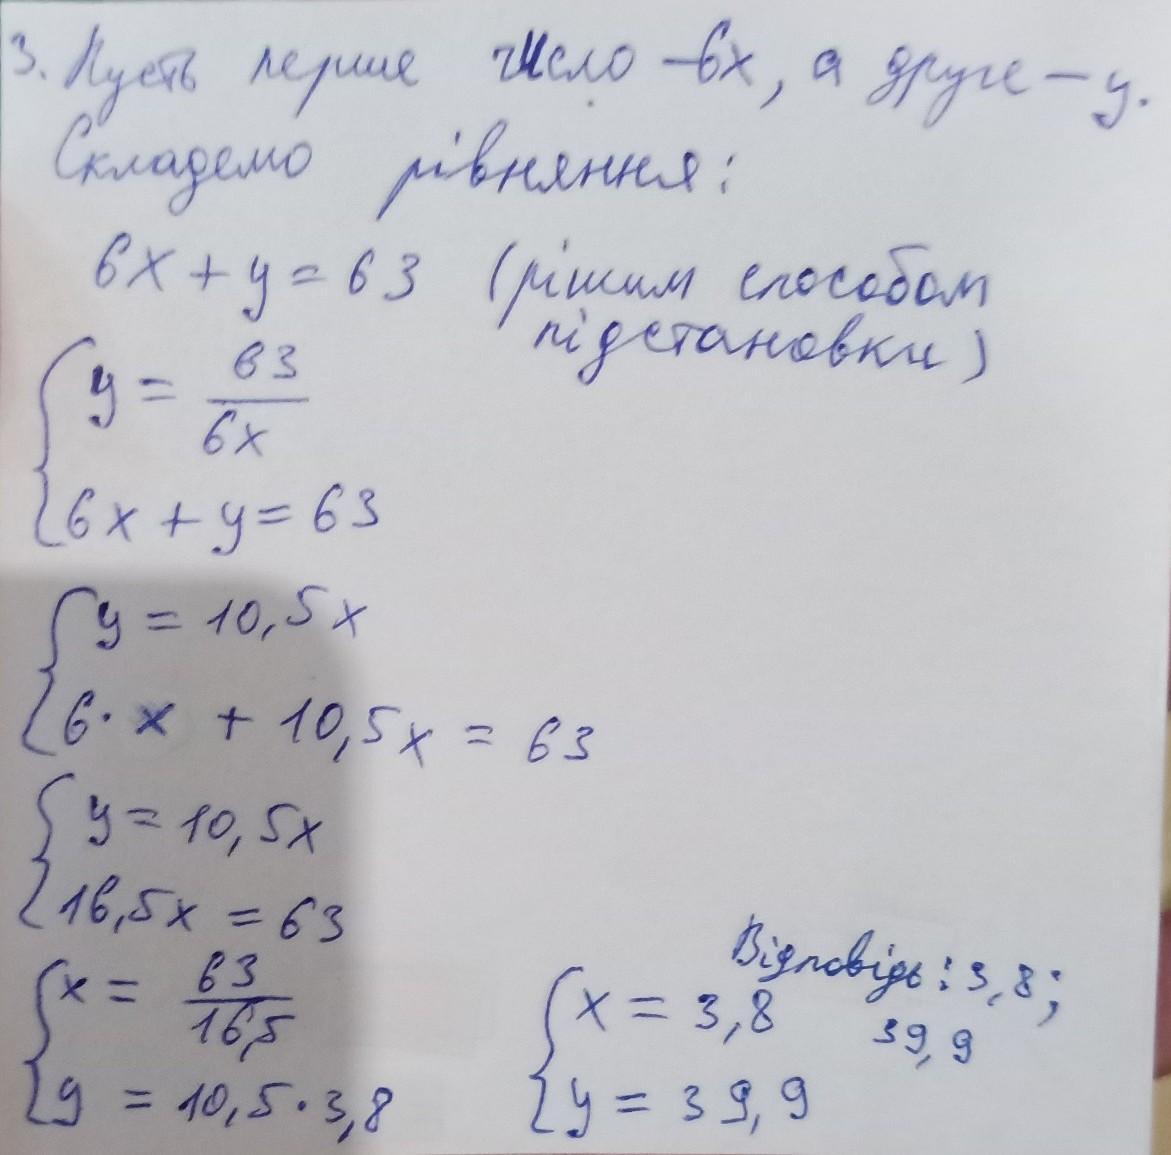 3. Пусть перше число – 6x, а друге – y.
Складемо рівняння:
6x + y = 63 (рішим способом
підстановки)
y = 63/6x
6x + y = 63
y = 10,5x
6 · x + 10,5x = 63
y = 10,5x
16,5x = 63
x = 63/16,5
y = 10,5 · 3,8
x = 3,8
y = 39,9
Відповідь: 3,8;
39,9